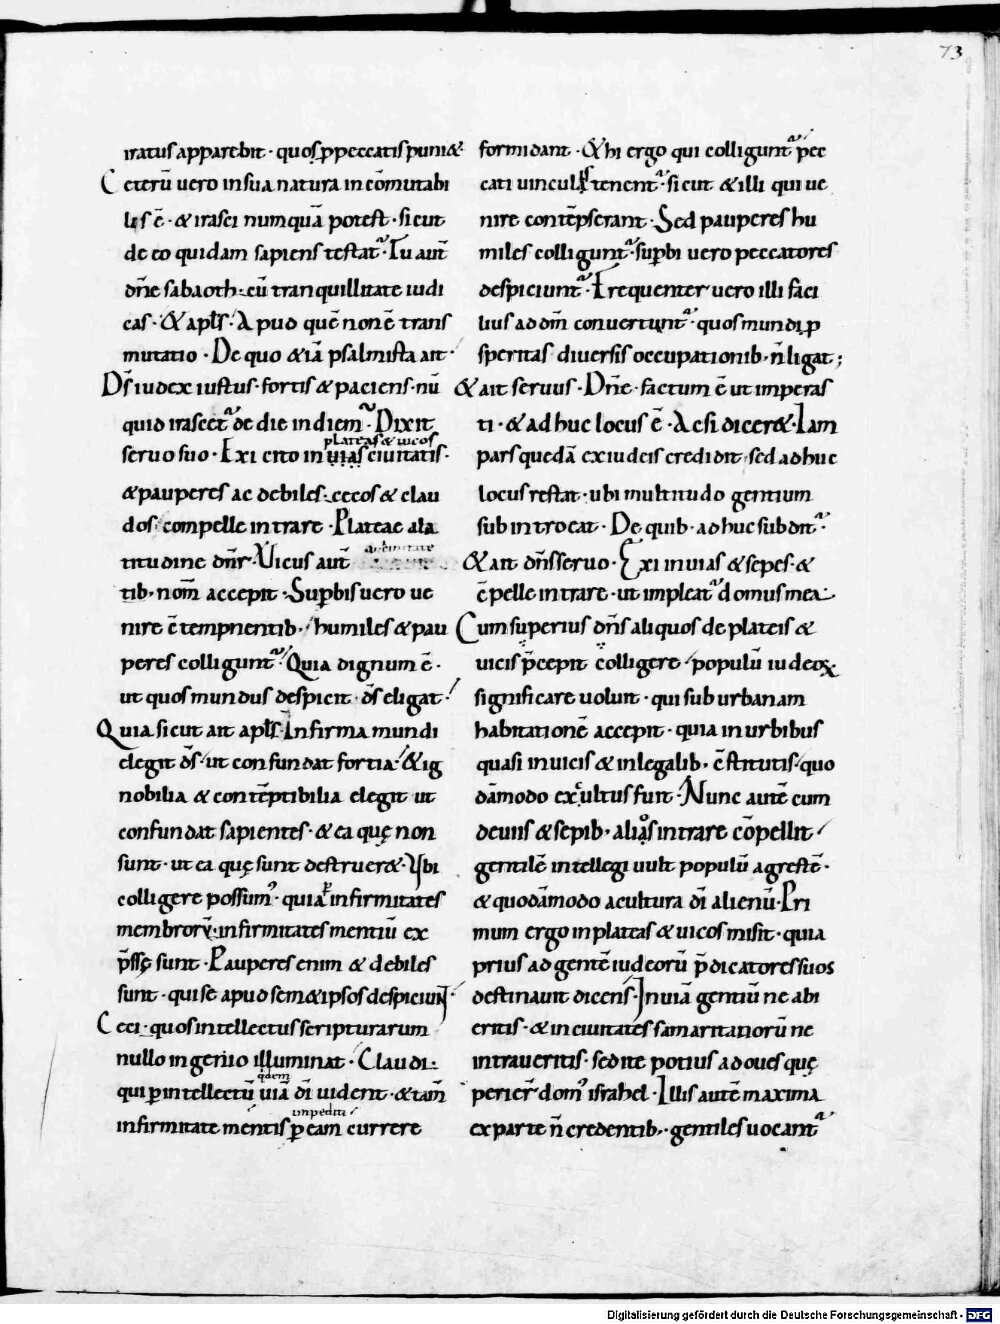 73
iratus apparebit · quos p̱ peccatis puni&
Ceterū uero in sua natura incōmutabi
lis ē · & irasci numquā potest · sicut
de eo quidam sapiens testat᷑ · Tu aut̄
dn̄e sabaoth · cū tranquillitate iudi
cas · & apl̄s · Apud quē non ē trans
mutatio · De quo & iā psalmista ait ·
Ds̄ iudex iustus · fortis & paciens · nū
quid irascet᷑ de die in diem · Dixit
plateas & uicos
seruo suo · Exi cito in uias ciuitatis ·
& pauperes ac debiles · cecos & clau
dos · compelle intrare · Plateae a la
titudine dn̄r · Uicus aut̄
tib · nom̄ accepit · Supbis uero ue
nire c̄tempnentib · humiles & pau
peres colligunt᷑ · Quia dignum ē ·
ut quos mundus despicit · ds̄ eligat ·
Quia sicut ait apl̄s · Infirma mundi
elegit ds̄ · ut confundat fortia · & ig
nobilia & contēptibilia elegit ut
confundat sapientes · & ea quę non
sunt · ut ea quę sunt destruer& · Ubi
colligere possum᾿ · quia p infirmitates
membrorū · infirmitates mentiū ex
p̄ssę sunt · Pauperes enim & debiles
sunt · qui se apud sem&ipsos despiciunt ·
Ceci · quos intellectus scripturarum
nullo ingenio illuminat · Claudi ·
qdem
qui p intellectū uiā dī uident · & tam̄
impediti
infirmitate mentis p eam currere
formidant · & hi ergo qui colligunt᷑ pec
cati uinculis tenent᷑ · sicut & illi qui ue
nire contēpserant · Sed pauperes hu
miles colligunt᷑ · supbi uero peccatores
despiciunt᷑ · Frequenter uero illi faci
lius ad dm̄ conuertunt᷑ · quos mundi p
speritas diuersis occupationib · n̄ ligat ;
& ait seruus · Dn̄e · factum ē ut imperas
ti · & adhuc locus ē · Ac si dicer& · Iam
pars quedā ex iudeis credidit · sed adhuc
locus restat · ubi multitudo gentium
subintroeat · De quib · adhuc subdit᷑ ·
& ait dn̄s seruo · Exi in uias & sepes · &
c̄pelle intrare · ut impleat᷑ domus mea
Cum superius dn̄s aliquos de plateis &
uicis p̄cepit colligere · populū iudeoꝝ
significare uoluit · qui suburbanam
habitationē accepit · quia in urbibus
quasi in uicis & in legalib · c̄stitutis · quo
dāmodo excultus fuit · Nunc autē cum
deuiis & sepib · alios intrare cōpellit
gentilē intellegi uult populū agrestē ·
& quodāmodo a cultura dī alienū · Pri
mum ergo in plateas & uicos misit · quia
prius ad gentē iudeorū p̄dicatores suos
destinauit dicens · In uiā gentiū ne abi
eritis · & in ciuitates samaritanorū ne
intraueritis · sed ite potius ad oues quę
perier̄ dom᾿ israhel · Illis autē maxima
ex parte n̄ credentib · gentiles uocant᷑
Digitalisierung gefördert durch die Deutsche Forschungsgemeinschaft - DFG